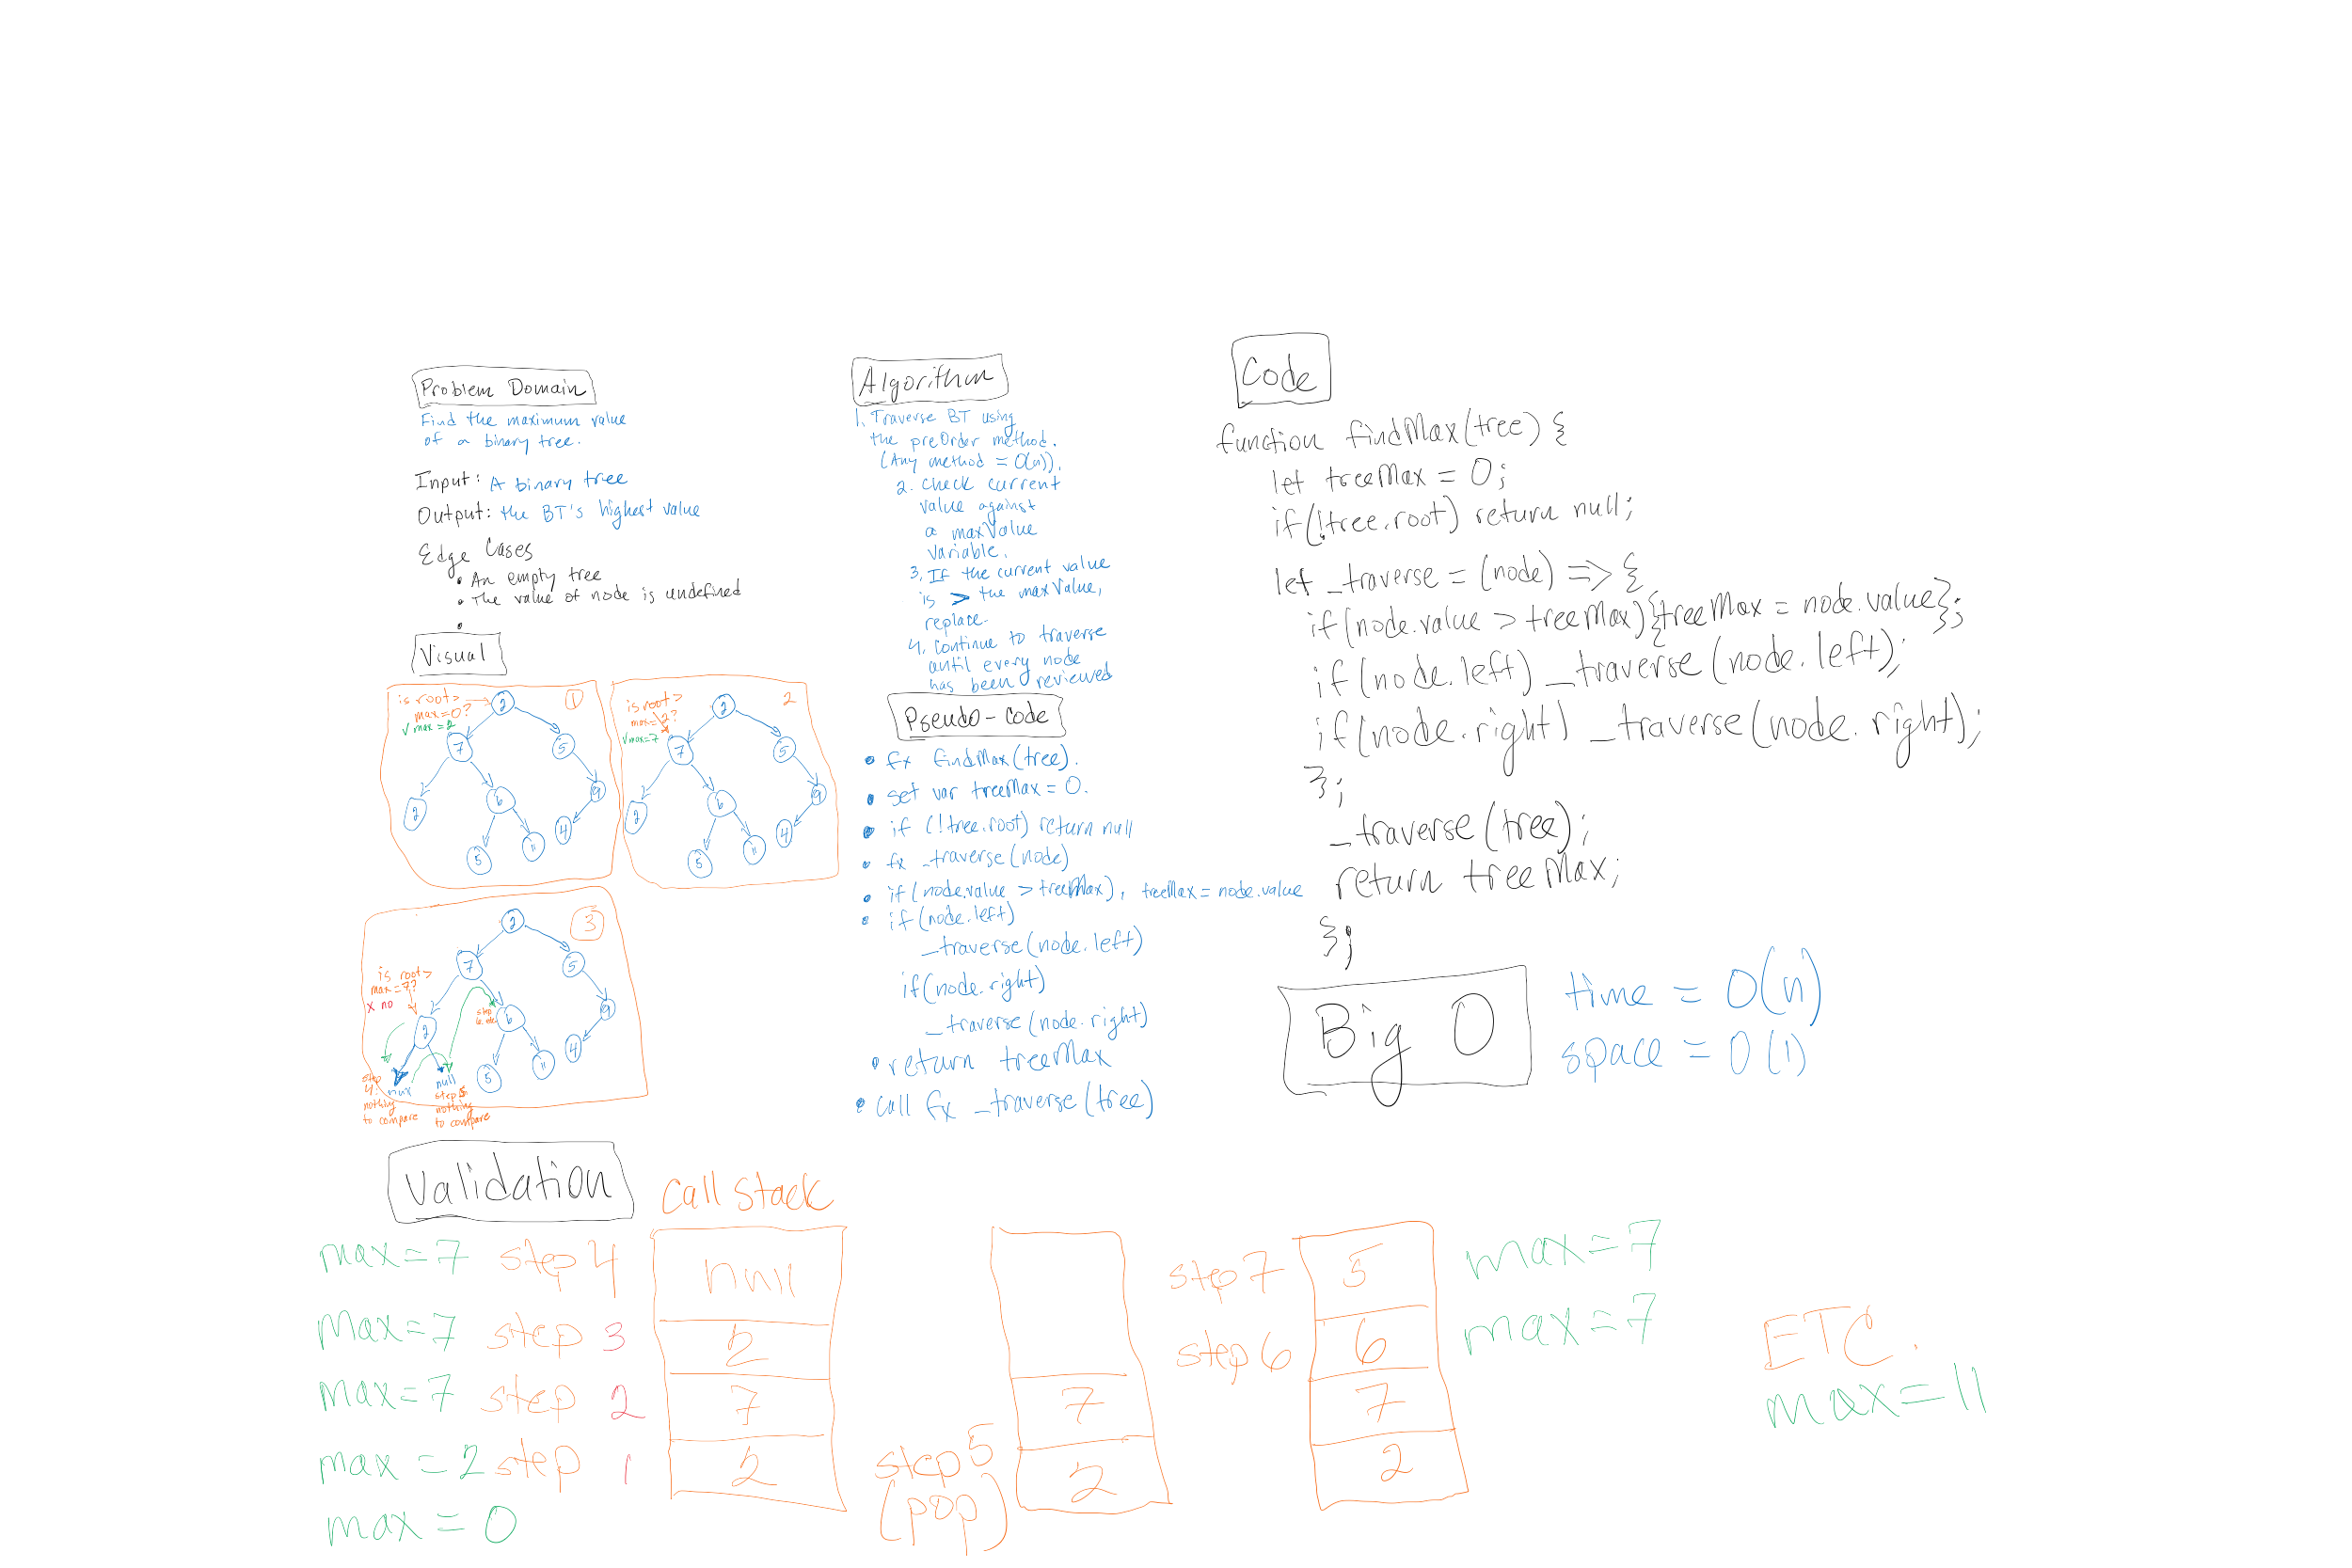 Problem Domain
Find the maximum value
of a binary tree.
Input: A binary tree
Output: the BT's highest value
Edge Cases
• An empty tree
• The value of node is undefined
•
Visual
is root >
max=0?
√ max=2
1
2
7
5
2
6
9
5
11
4
is root >
max=2?
√max=7
2
2
7
5
2
6
9
5
11
4
3
2
7
5
is root >
max=7?
x no
2
step
6, etc
6
9
5
11
4
step
4:
null
nothing
to compare
null
step 5
nothing
to compare
Algorithm
1. Traverse BT using
the preOrder method.
(Any method = O(n)).
2. Check current
value against
a maxValue
variable.
3. If the current value
is > the maxValue,
replace.
4. Continue to traverse
until every node
has been reviewed
Pseudo-code
• fx findMax(tree).
• set var treeMax = 0.
• if (!tree.root) return null
• fx _traverse(node)
• if(node.value > treeMax), treeMax = node.value
• if(node.left)
_traverse(node.left)
if(node.right)
_traverse(node.right)
• return treeMax
• call fx _traverse(tree)
Code
function findMax(tree) {
let treeMax = 0;
if(!tree.root) return null;
let _traverse = (node) => {
if(node.value > treeMax){treeMax = node.value};
if(node.left) _traverse(node.left);
if(node.right) _traverse(node.right);
};
_traverse(tree);
return treeMax;
};
Big O
time = O(n)
space = O(1)
Validation
Call Stack
max=7 step 4 null
max=7 step 3 2
max=7 step 2 7
max=2 step 1 2
max=0
step 5
(pop)
7
2
step 7 5 max=7
step 6 6 max=7
7
2
ETC.
max=11